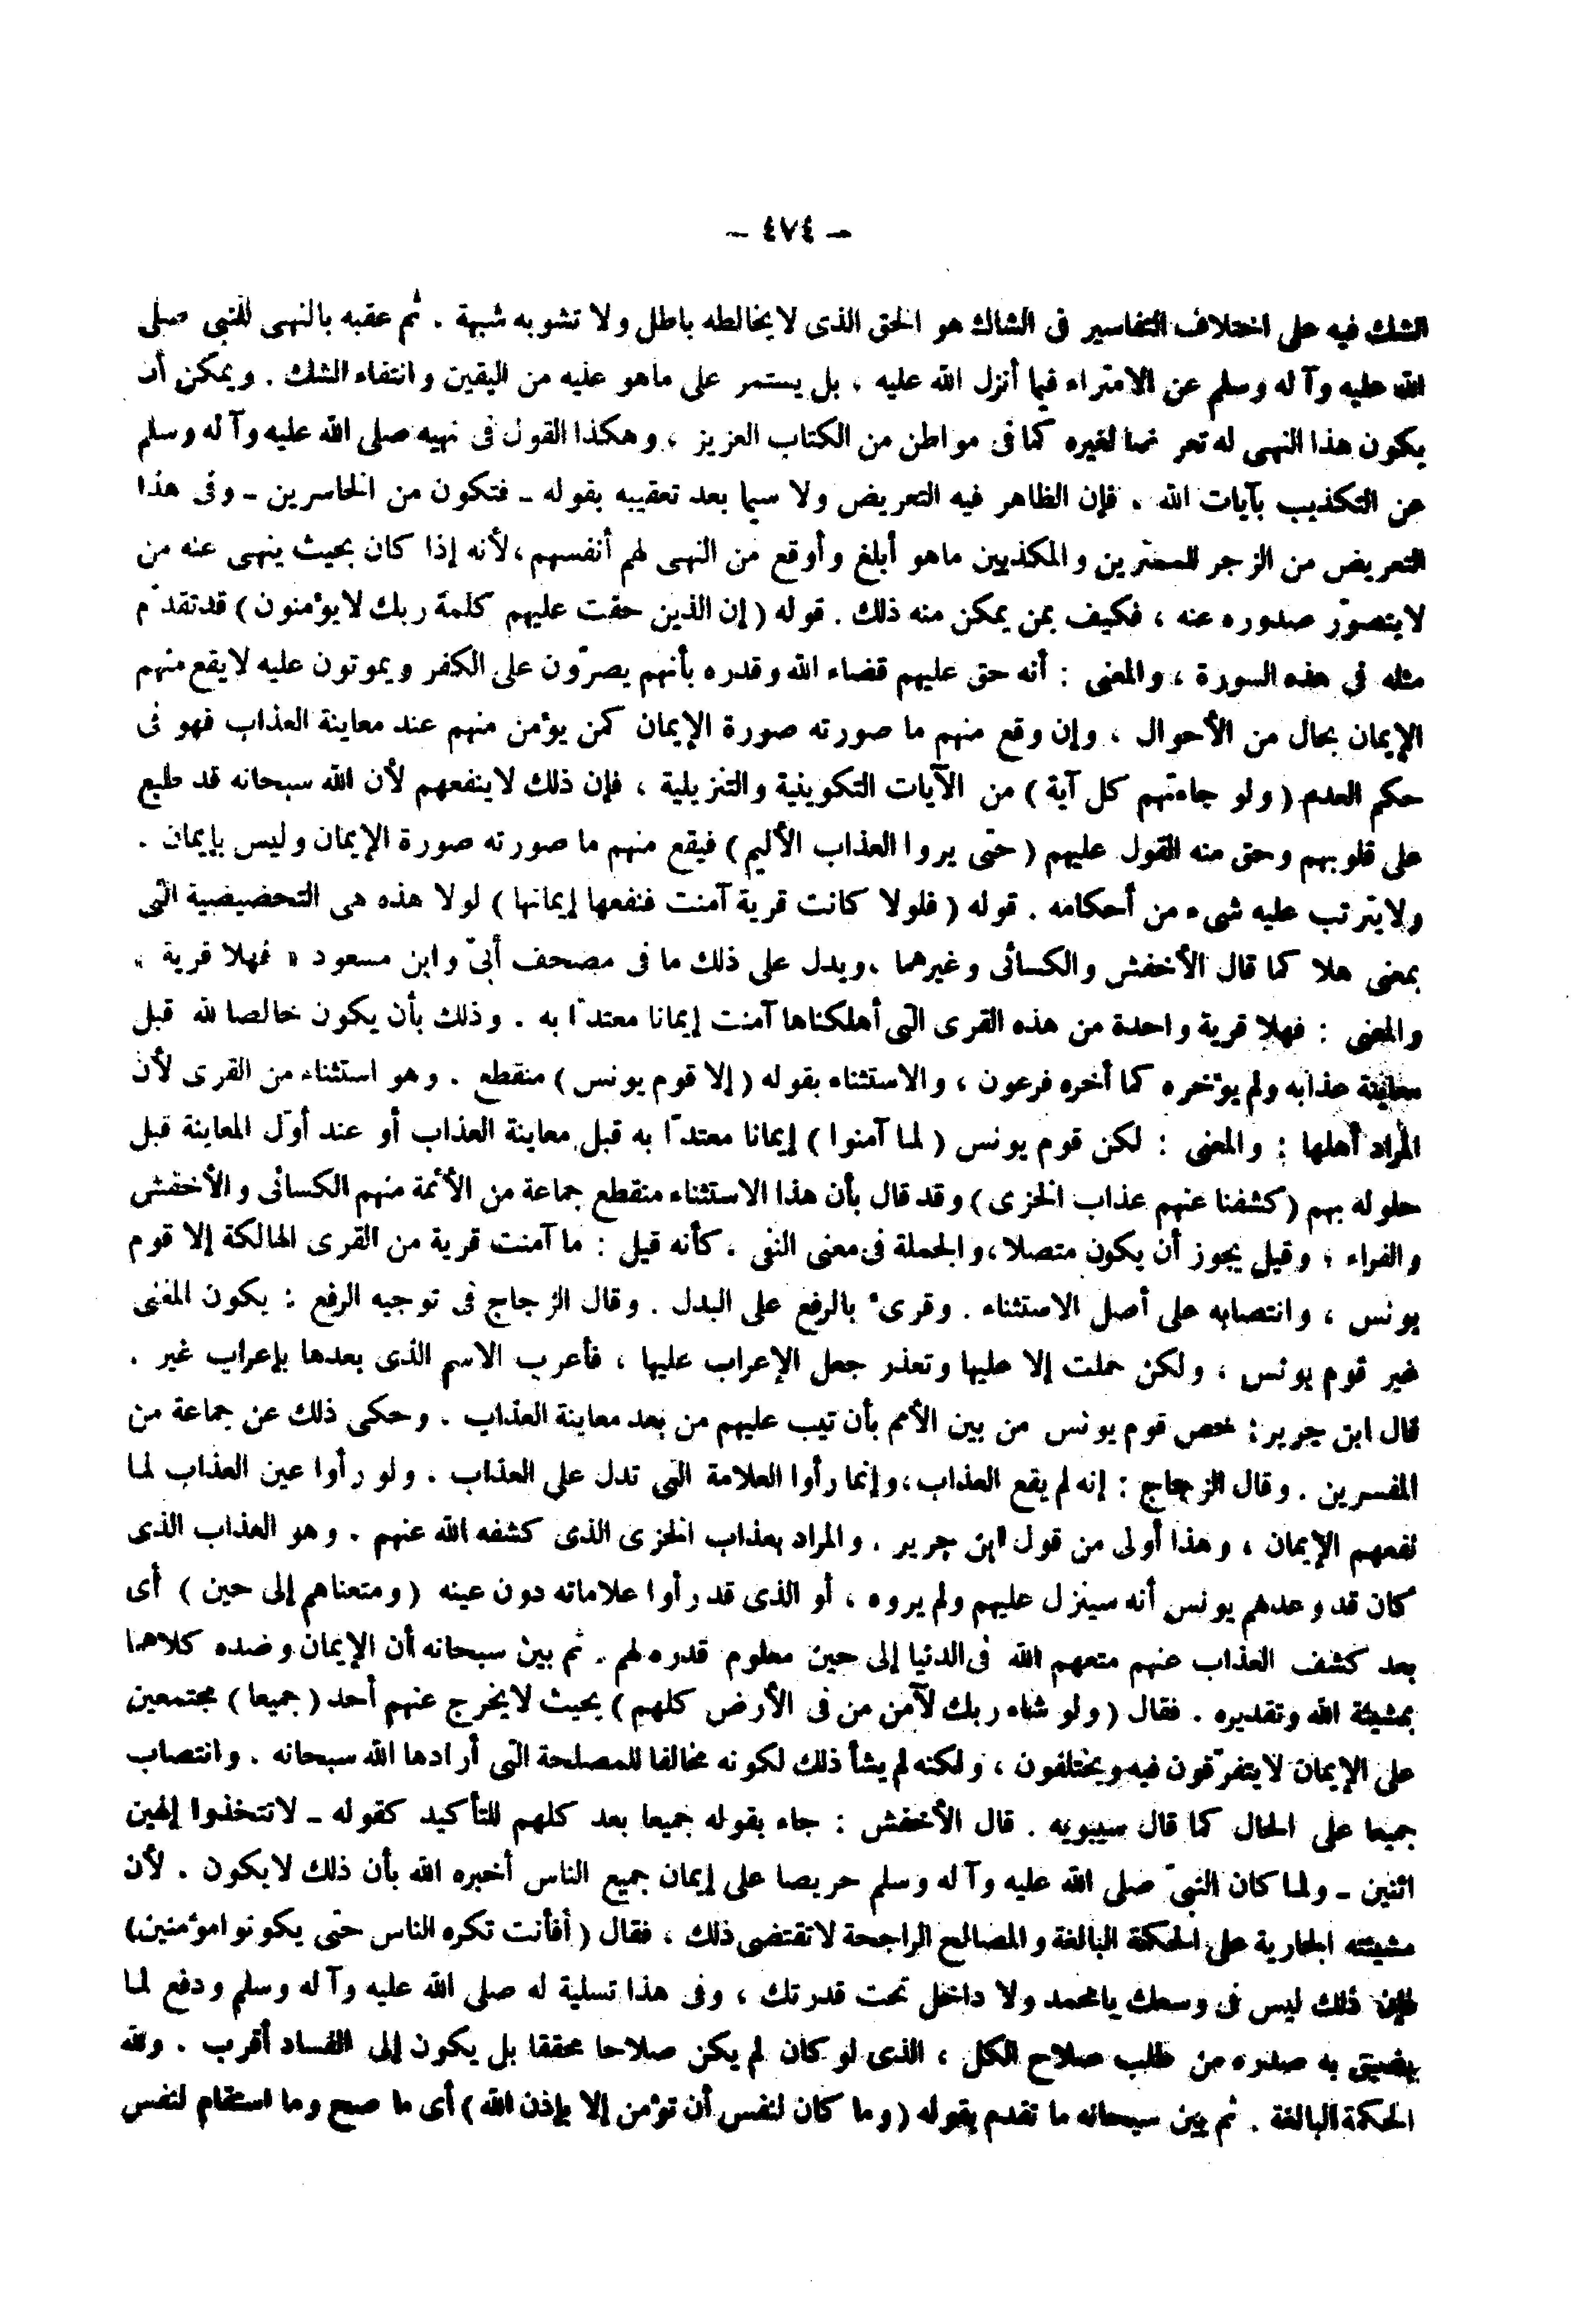 – ٤٧٤ –
الشك فيه على اختلاف التفاسير فى الشاك هو الحق الذى لا يخالطه باطل ولا تشوبه شبهة . ثم عقبه بالنهى للنبى صلى
الله عليه وآله وسلم عن الامتراء فيما أنزل الله عليه ، بل يستمر على ماهو عليه من اليقين وانتفاء الشك . ويمكن أن
يكون هذا النهى له تعريضا لغيره كما فى مواطن من الكتاب العزيز ، وهكذا القول فى نهيه صلى الله عليه وآله وسلم
عن التكذيب بآيات الله ، فإن الظاهر فيه التعريض ولا سيما بعد تعقيبه بقوله – فتكون من الخاسرين – وفى هذا
التعريض من الزجر للممترين والمكذبين ماهو أبلغ وأوقع من النهى لهم أنفسهم ، لأنه إذا كان بحيث ينهى عنه من
لايتصوّر صدوره عنه ، فكيف بمن يمكن منه ذلك . قوله ( إن الذين حقت عليهم كلمة ربك لايؤمنون ) قدتقدّم
مثله فى هذه السورة ، والمعنى : أنه حق عليهم قضاء الله وقدره بأنهم يصرّون على الكفر ويموتون عليه لايقع منهم
الإيمان بحال من الأحوال ، وإن وقع منهم ما صورته صورة الإيمان كمن يؤمن منهم عند معاينة العذاب فهو فى
حكم العدم ( ولو جاءتهم كل آية ) من الآيات التكوينية والتنزيلية ، فإن ذلك لاينفعهم لأن الله سبحانه قد طبع
على قلوبهم وحق منه القول عليهم ( حتى يروا العذاب الأليم ) فيقع منهم ما صورته صورة الإيمان وليس بإيمان .
ولايترتب عليه شىء من أحكامه . قوله ( فلولا كانت قرية آمنت فنفعها إيمانها ) لولا هذه هى التحضيضية التى
بمعنى هلا كما قال الأخفش والكسائى وغيرهما ، ويدل على ذلك ما فى مصحف أبىّ وابن مسعود « فهلا قرية »
والمعنى : فهلا قرية واحدة من هذه القرى التى أهلكناها آمنت إيمانا معتدّا به . وذلك بأن يكون خالصا لله قبل
معاينة عذابه ولم يؤخره كما أخره فرعون ، والاستثناء بقوله ( إلا قوم يونس ) منقطع . وهو استثناء من القرى لأن
المراد أهلها : والمعنى : لكن قوم يونس ( لما آمنوا ) إيمانا معتدّا به قبل معاينة العذاب أو عند أوّل المعاينة قبل
حلوله بهم ( كشفنا عنهم عذاب الخزى ) وقد قال بأن هذا الاستثناء منقطع جماعة من الأئمة منهم الكسائى والأخفش
والفراء ، وقيل يجوز أن يكون متصلا ، والجملة فى معنى النفى ، كأنه قيل : ما آمنت قرية من القرى الهالكة إلا قوم
يونس ، وانتصابه على أصل الاستثناء . وقرئ بالرفع على البدل . وقال الزجاج فى توجيه الرفع : يكون المعنى
غير قوم يونس ، ولكن حملت إلا عليها وتعذر جعل الإعراب عليها ، فأعرب الاسم الذى بعدها بإعراب غير .
قال ابن جرير : خص قوم يونس من بين الأمم بأن تيب عليهم من بعد معاينة العذاب . وحكى ذلك عن جماعة من
المفسرين . وقال الزجاج : إنه لم يقع العذاب ، وإنما رأوا العلامة التى تدل على العذاب . ولو رأوا عين العذاب لما
نفعهم الإيمان ، وهذا أولى من قول ابن جرير . والمراد بعذاب الخزى الذى كشفه الله عنهم . وهو العذاب الذى
كان قد وعدهم يونس أنه سينزل عليهم ولم يروه ، أو الذى قد رأوا علاماته دون عينه ( ومتعناهم إلى حين ) أى
بعد كشف العذاب عنهم متعهم الله فى الدنيا إلى حين معلوم قدره لهم . ثم بين سبحانه أن الإيمان وضده كلاهما
بمشيئة الله وتقديره . فقال ( ولو شاء ربك لآمن من فى الأرض كلهم ) بحيث لايخرج عنهم أحد ( جميعا ) مجتمعين
على الإيمان لايتفرّقون فيه ويختلفون ، ولكنه لم يشأ ذلك لكونه مخالفا للمصلحة التى أرادها الله سبحانه . وانتصاب
جميعا على الحال كما قال سيبويه . قال الأخفش : جاء بقوله جميعا بعد كلهم للتأكيد كقوله – لاتتخذوا إلهين
اثنين – ولما كان النبىّ صلى الله عليه وآله وسلم حريصا على إيمان جميع الناس أخبره الله بأن ذلك لايكون . لأن
مشيئته الجارية على الحكمة البالغة والمصالح الراجحة لاتقتضى ذلك ، فقال ( أفأنت تكره الناس حتى يكونوا مؤمنين )
فإن ذلك ليس فى وسعك يامحمد ولا داخل تحت قدرتك ، وفى هذا تسلية له صلى الله عليه وآله وسلم ودفع لما
يضيق به صدره من طلب صلاح الكل ، الذى لو كان لم يكن صلاحا محققا بل يكون إلى الفساد أقرب . ولله
الحكمة البالغة . ثم بين سبحانه ما تقدم بقوله ( وما كان لنفس أن تؤمن إلا بإذن الله ) أى ما صح وما استقام لنفس